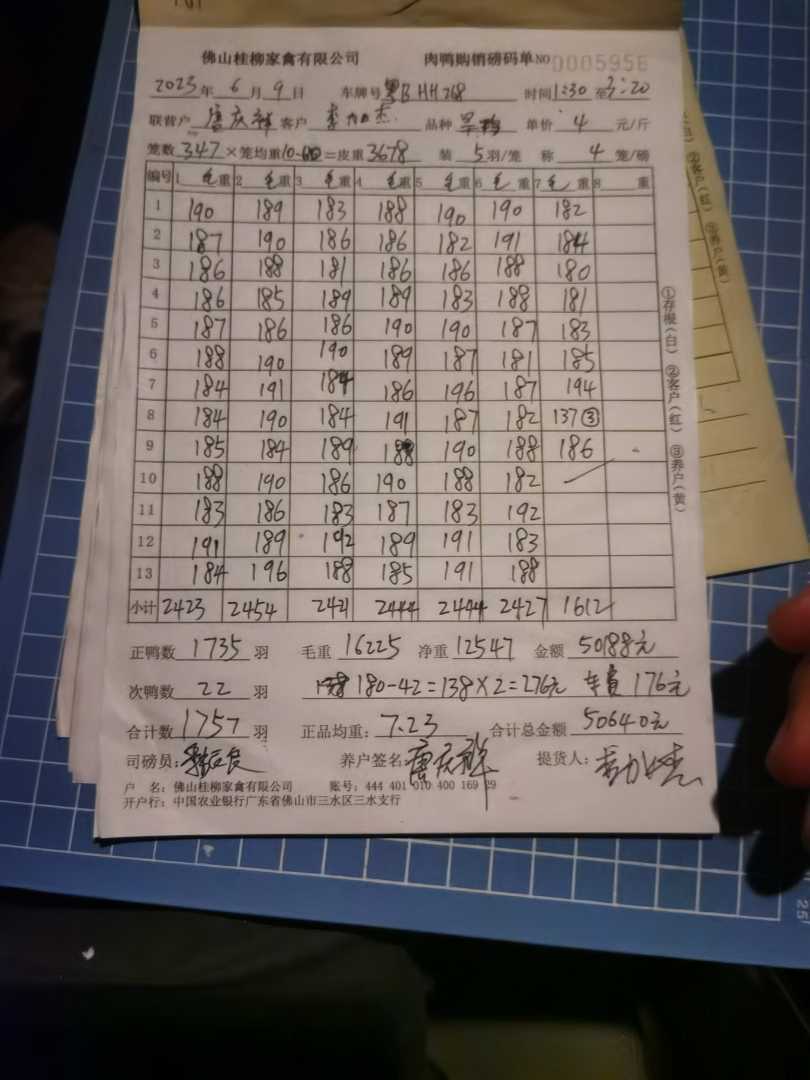 佛山桂柳家禽有限公司 肉鸭购销磅码单 NO 0005956
2023年 6月 9日 车牌号 HH268 时间1:30至3:20
联营户 唐庆祥 客户 品种 单价 4 元/斤
笼数 347 ×笼均重 =皮重 3678 装 5 羽/笼 称 4 笼/磅
编号 1 毛重 2 毛重 3 毛重 4 毛重 5 毛重 6 毛重 7 毛重 8 重
1 190 189 183 188 190 190 182
2 187 190 186 186 182 191 184
3 186 188 181 186 186 188 180
4 186 185 189 189 183 188 181
5 187 186 186 190 190 187 183
6 188 190 190 189 187 181 185
7 184 191 184 186 196 187 194
8 184 190 184 191 187 182 137③
9 185 184 189 188 190 188 186
10 188 190 186 190 188 182
11 183 186 183 187 183 192
12 191 189 192 189 191 183
13 184 196 188 185 191 188
小计 2423 2454 2421 2444 2444 2427 1612
正鸭数 1735 羽 毛重 16225 净重 12547 金额 50188元
次鸭数 22 羽 180-42=138×2=276元 车费 176元
合计数 1757 羽 正品均重: 7.23 合计总金额 50640元
司磅员: 养户签名: 唐庆祥 提货人:
户 名: 佛山桂柳家禽有限公司 账号: 444 401 010 400 169 29
开户行: 中国农业银行广东省佛山市三水区三水支行
①存根(白) ②客户(红) ③养户(黄)
②客户(红) ③养户(黄)